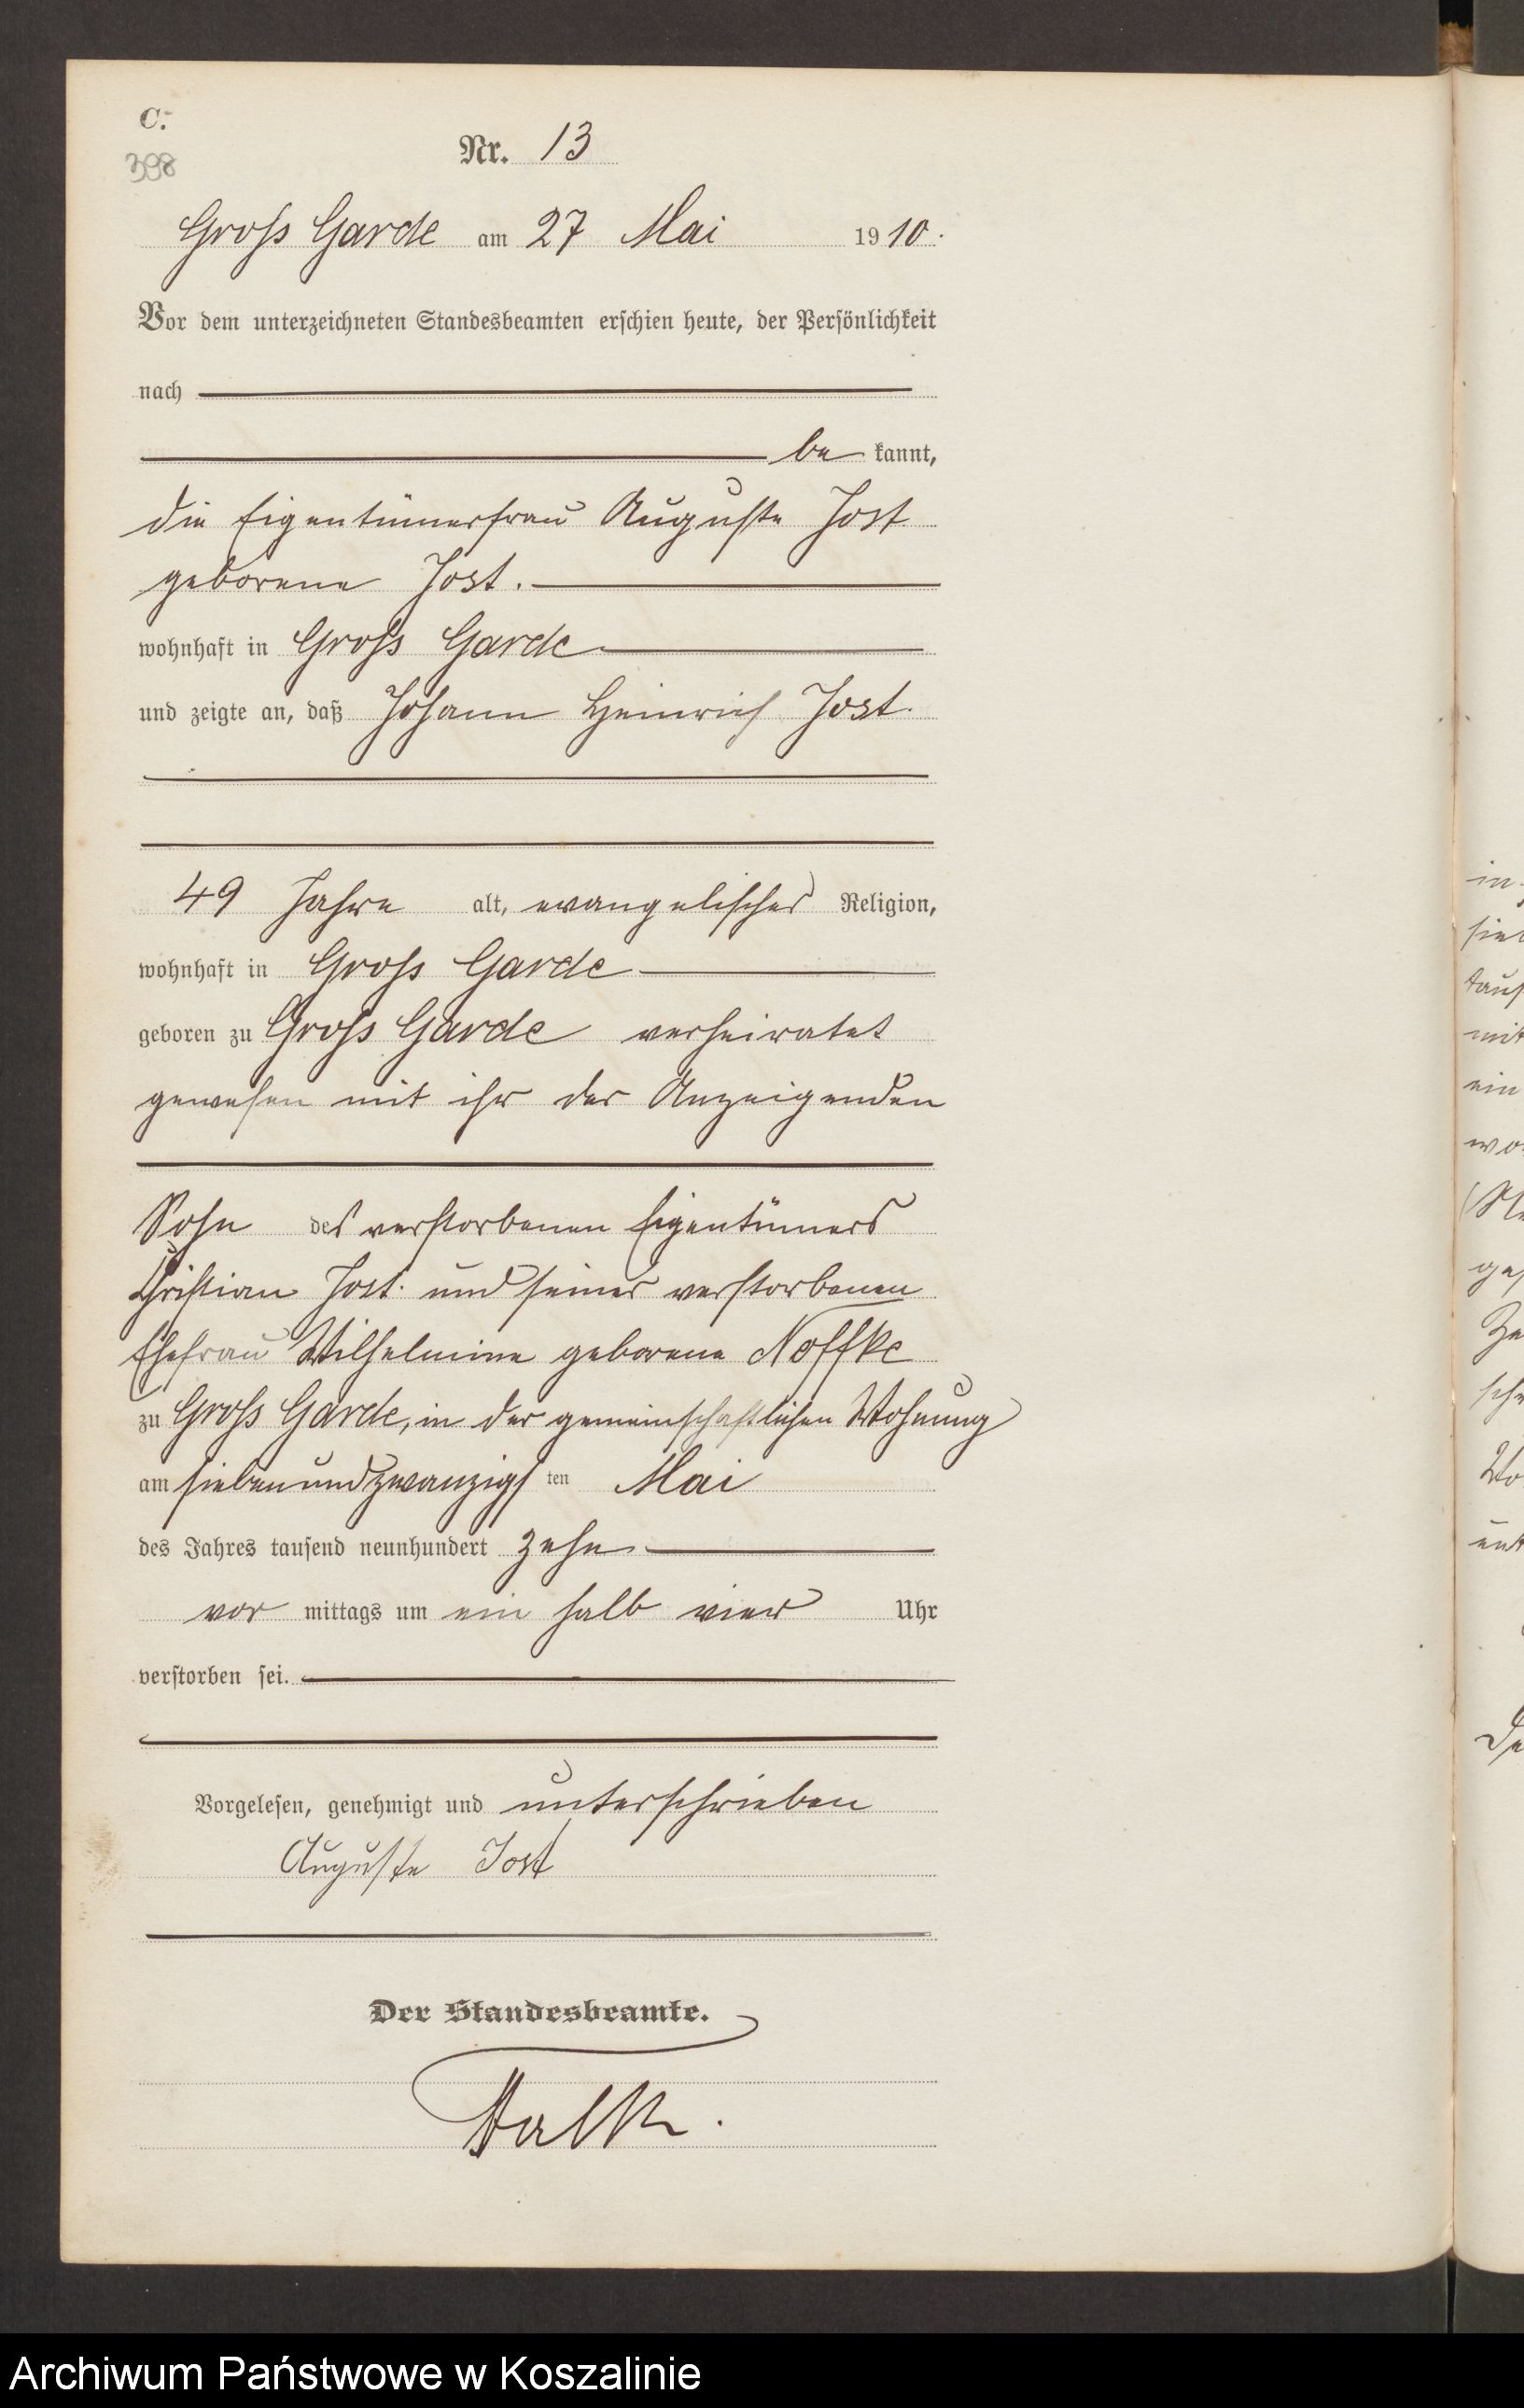 C.
398
Nr. 13
Gross Garde am 27 Mai 1910.
Vor dem unterzeichneten Standesbeamten erschien heute, der Persönlichkeit
nach
be kannt,
die Eigentümerfrau Auguste Jost
geborene Jost.
wohnhaft in Gross Garde
und zeigte an, daß Johann Heinrich Jost.
49 Jahre alt, evangelischer Religion,
wohnhaft in Gross Garde
geboren zu Gross Garde verheiratet
gewesen mit ihr der Anzeigenden
Sohn des verstorbenen Eigentümers
Christian Jost. und seiner verstorbenen
Ehefrau Wilhelmine geborene Noffke
zu Gross Garde, in der gemeinschaftlichen Wohnung
am siebenundzwanzigsten Mai
des Jahres tausend neunhundert zehn
vor mittags um ein halb vier Uhr
verstorben sei.
Vorgelesen, genehmigt und unterschrieben
Auguste Jost
Der Standesbeamte.
Falk.
in
tauf
mit
ein
Archiwum Państwowe w Koszalinie